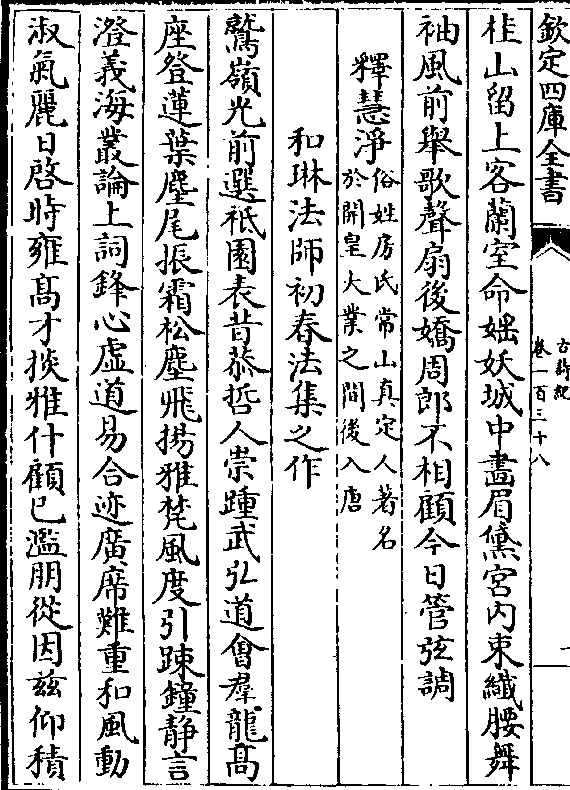 欽定四庫全書
古詩紀
卷一百三十八
桂山留上客蘭室命妖嬈城中畵眉黛宮内束纖腰舞
袖風前舉歌聲扇後嬌周郎不相顧今日管弦調
釋慧淨
俗姓房氏常山真定人著名
於開皇大業之間後入唐
和琳法師初春法集之作
鷲嶺光前選祇園表昔恭哲人崇踵武弘道會羣龍髙
座登蓮葉麈尾振霜松塵飛揚雅梵風度引踈鐘静言
澄義海叢論上詞鋒心虚道易合迹廣席難重和風動
淑氣麗日啓時雍髙才掞雅什顧已濫朋從因兹仰積